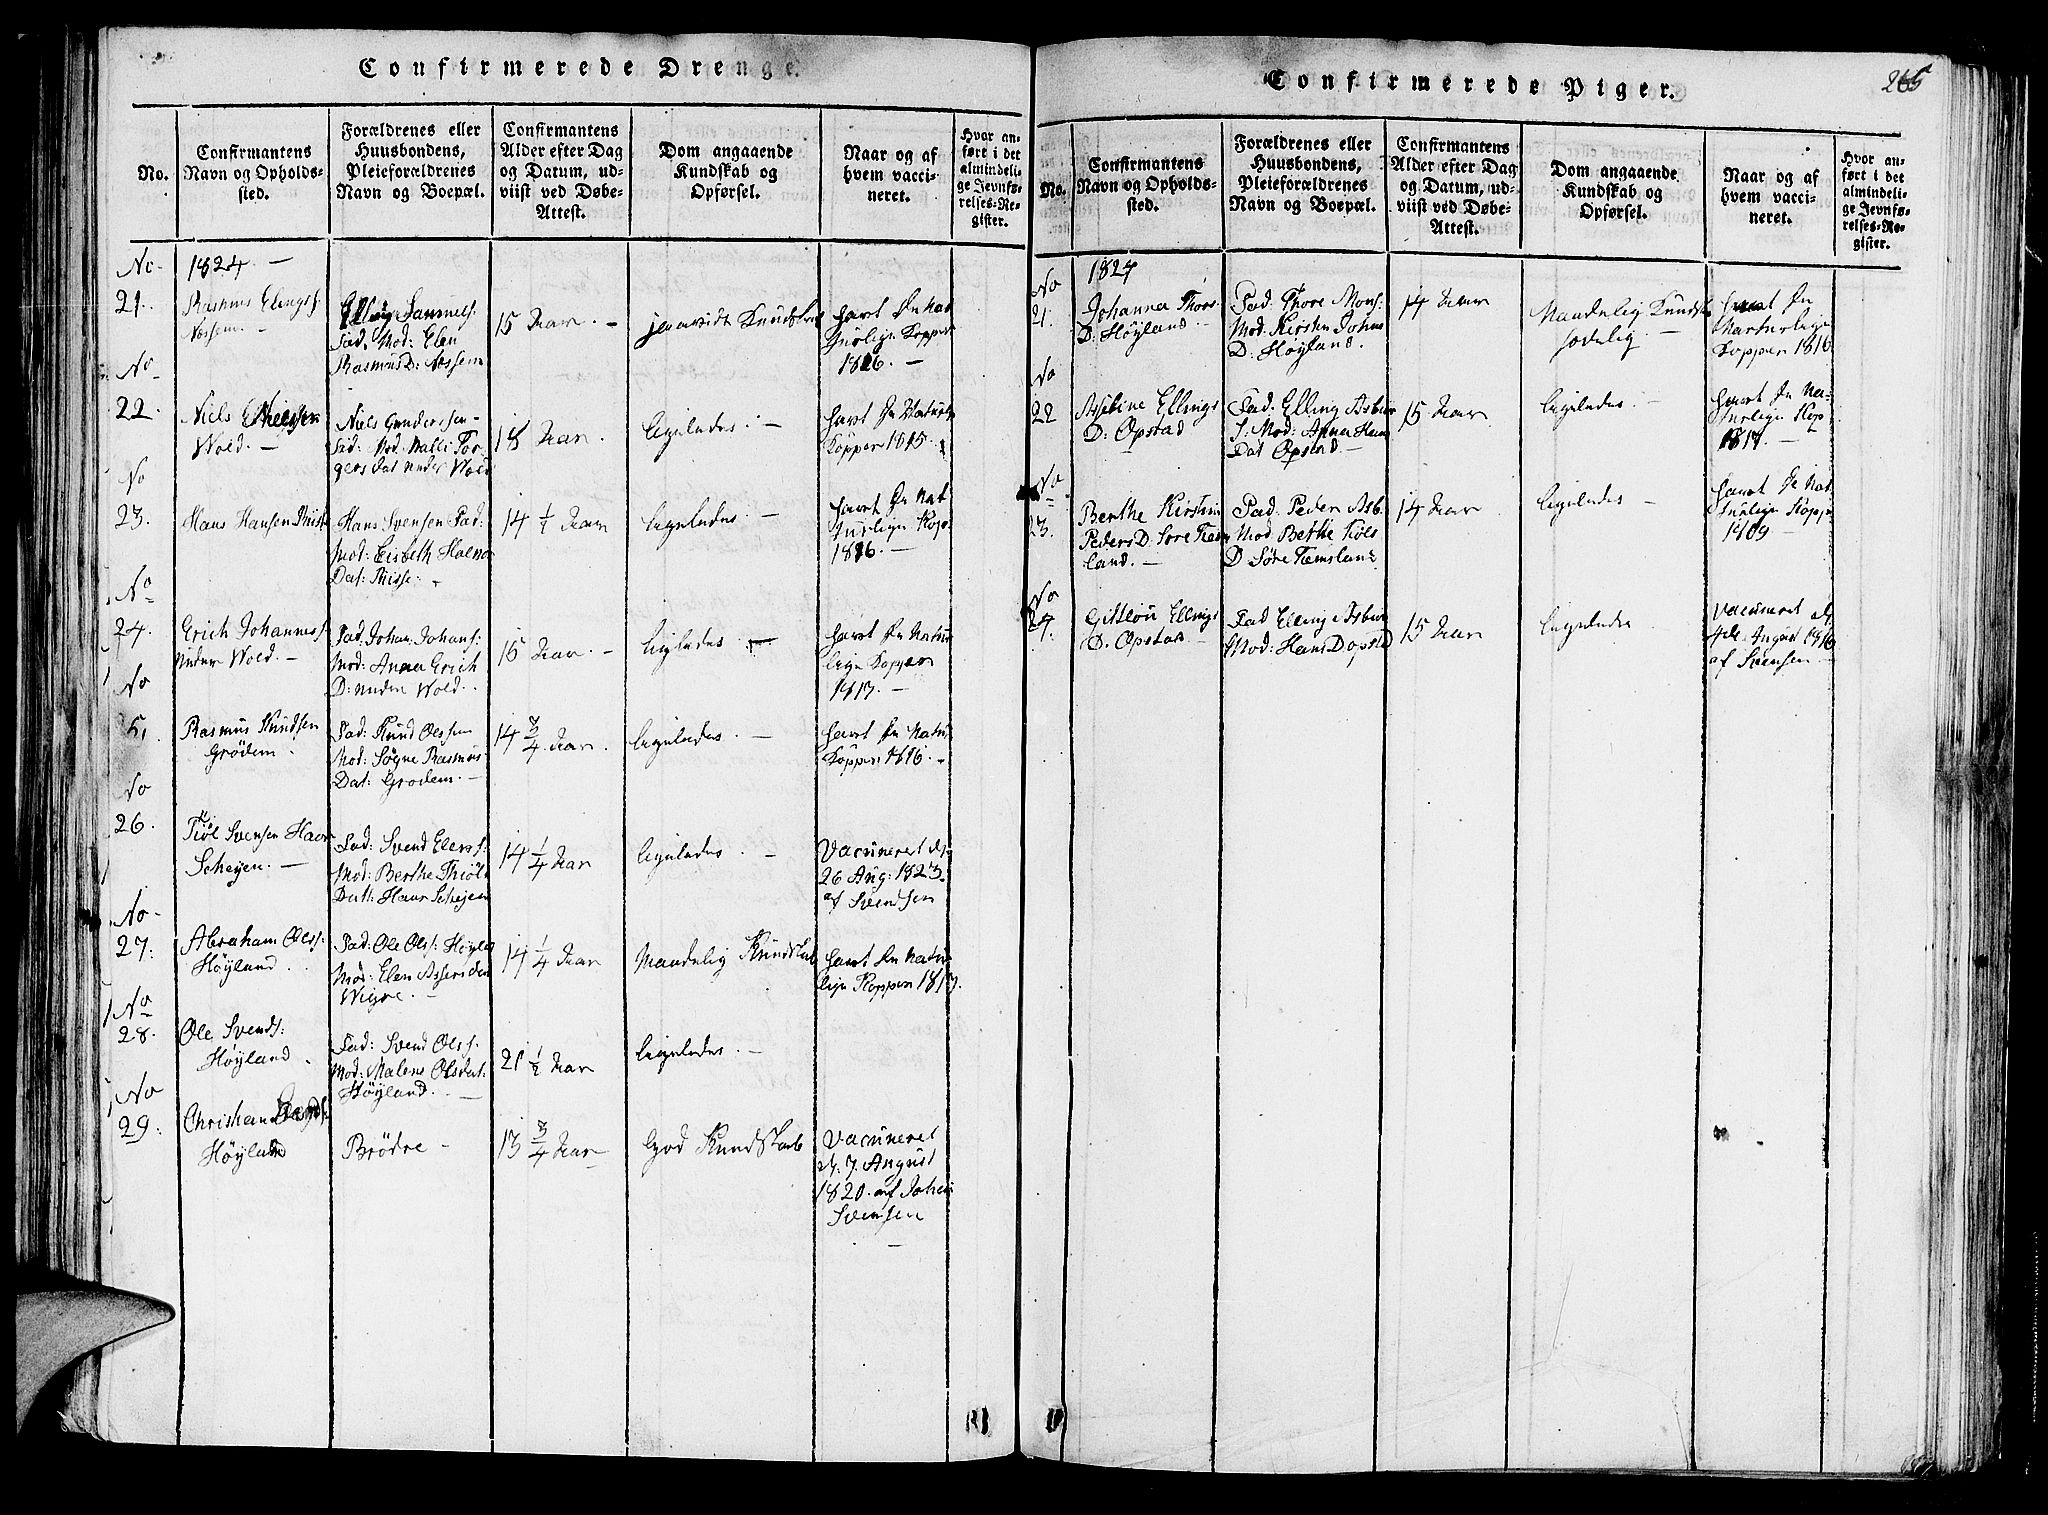 Confirmerede Drenge.
No.
Confirmantens
Navn og Opholds-
sted.
Forældrenes eller
Huusbondens,
Pleieforældrenes
Navn og Boepæl.
Confirmantens
Alder efter Dag
og Datum, ud-
viist ved Døbe-
Attest.
Dom angaaende
Kundskab og
Opførsel.
Naar og af
hvem vacci-
neret.
Hvor an-
ført i det
almindeli-
ge Jevnfø-
relses-Re-
gister.
No.
1824. —
21.
Rasmus Elings:
Elling Samuels:
Fad. Mod: Elen
Rasmus D:
15 Aar. —
Kundskab
havt De Nat
turlige Kopper
1816. —
No
22.
Niels
Wold. —
Niels Gundersen —
Fad: Mod. Malli Tor-
gers Dat neder Wold
18 Aar.
ligeledes. —
havt De Naturl
Kopper 1815.
No
23.
Hans Hansen
Hans Svensen Fad:
Mod: Lisbeth
Dat:
14 1/2 Aar
ligeledes. —
havt De Nat
turlige Kop:
1816. —
No
24.
Erich Johannes:
neder Wold. —
Fad: Johan. Johans:
Mod: Anna Erich
D: neden Wold.
15 Aar. —
ligeledes —
havt De Natur
lige Kopper
1817. —
No
5,
Rasmus Knudsen
Grödem
Fad: Knud Olssen
Mod: Søgne Rasmus
Dat: Grodem. —
14 3/4 Aar.
ligeledes. —
havt De Natur
Kopper 1816. —
No
26.
Tiøl Svensen Haar
Schejen. —
Fad: Svend Elers:
Mod: Berthe Thiöl
Datt: Haar Schejen
14 1/4 Aar
ligeledes. —
Vacineret d.
26 Aug: 1823.
af Svendsen
No —
27.
Abraham Ols:
Höyland
Fad: Ole Ols: Höyl
Mod: Elen
Wigre. —
14 1/4 Aar
Maadelig Kundskab
havt De Natur
lige Kopper 1817.
No
28.
Ole Svends:
Höyland
Fad: Svend Ols:
Mod: Malene Olsdat:
Höyland. —
21 1/2 Aar
ligeledes. —
No
29.
Christian
Höyland
Brödre —
13 3/4 Aar —
God Kundskab
Vacineret
d. 7. August
1820. af Johan
Svensen
—
Confirmerede Piger.
265
No.
Confirmantens
Navn og Opholds-
sted.
Forældrenes eller
Huusbondens,
Pleieforældrenes
Navn og Boepæl.
Confirmantens
Alder efter Dag
og Datum, ud-
viist ved Døbe-
Attest.
Dom angaaende
Kundskab og
Opførsel.
Naar og af
hvem vacci-
neret.
Hvor an-
ført i det
almindeli-
ge Jevnfø-
relses-Re-
gister.
No
1824
21.
Johanna Thors
D: Höyland. —
Fad: Thore Mons:
Mod: Kirsten Johns
D: Höyland.
14 Aar
Maadelig Kundsk
sædelig —
havt De
Naturlige
Kopper 1816
No
22
Asebine Ellings
D: Opstad
Fad: Elling Asbiør
S: Mod: Anna Hans
Dat Opstad —
15 Aar
ligeledes. —
havt De Na-
turlige Kop
1817. —
No
23.
Berthe Kirstine
Peders D: Söre
land. —
Fad: Peder Asb:
Mod: Berthe Tiöls
D Söre
14 Aar
ligeledes —
havt De Nat
turlige Kopp
1809 —
No
24.
Ellings
D. Opstad —
Fad Elling Asbiør
Mod: Hans D opstad
15 Aar
ligeledes
Vacineret d.
4de August 1816
af Svensen —